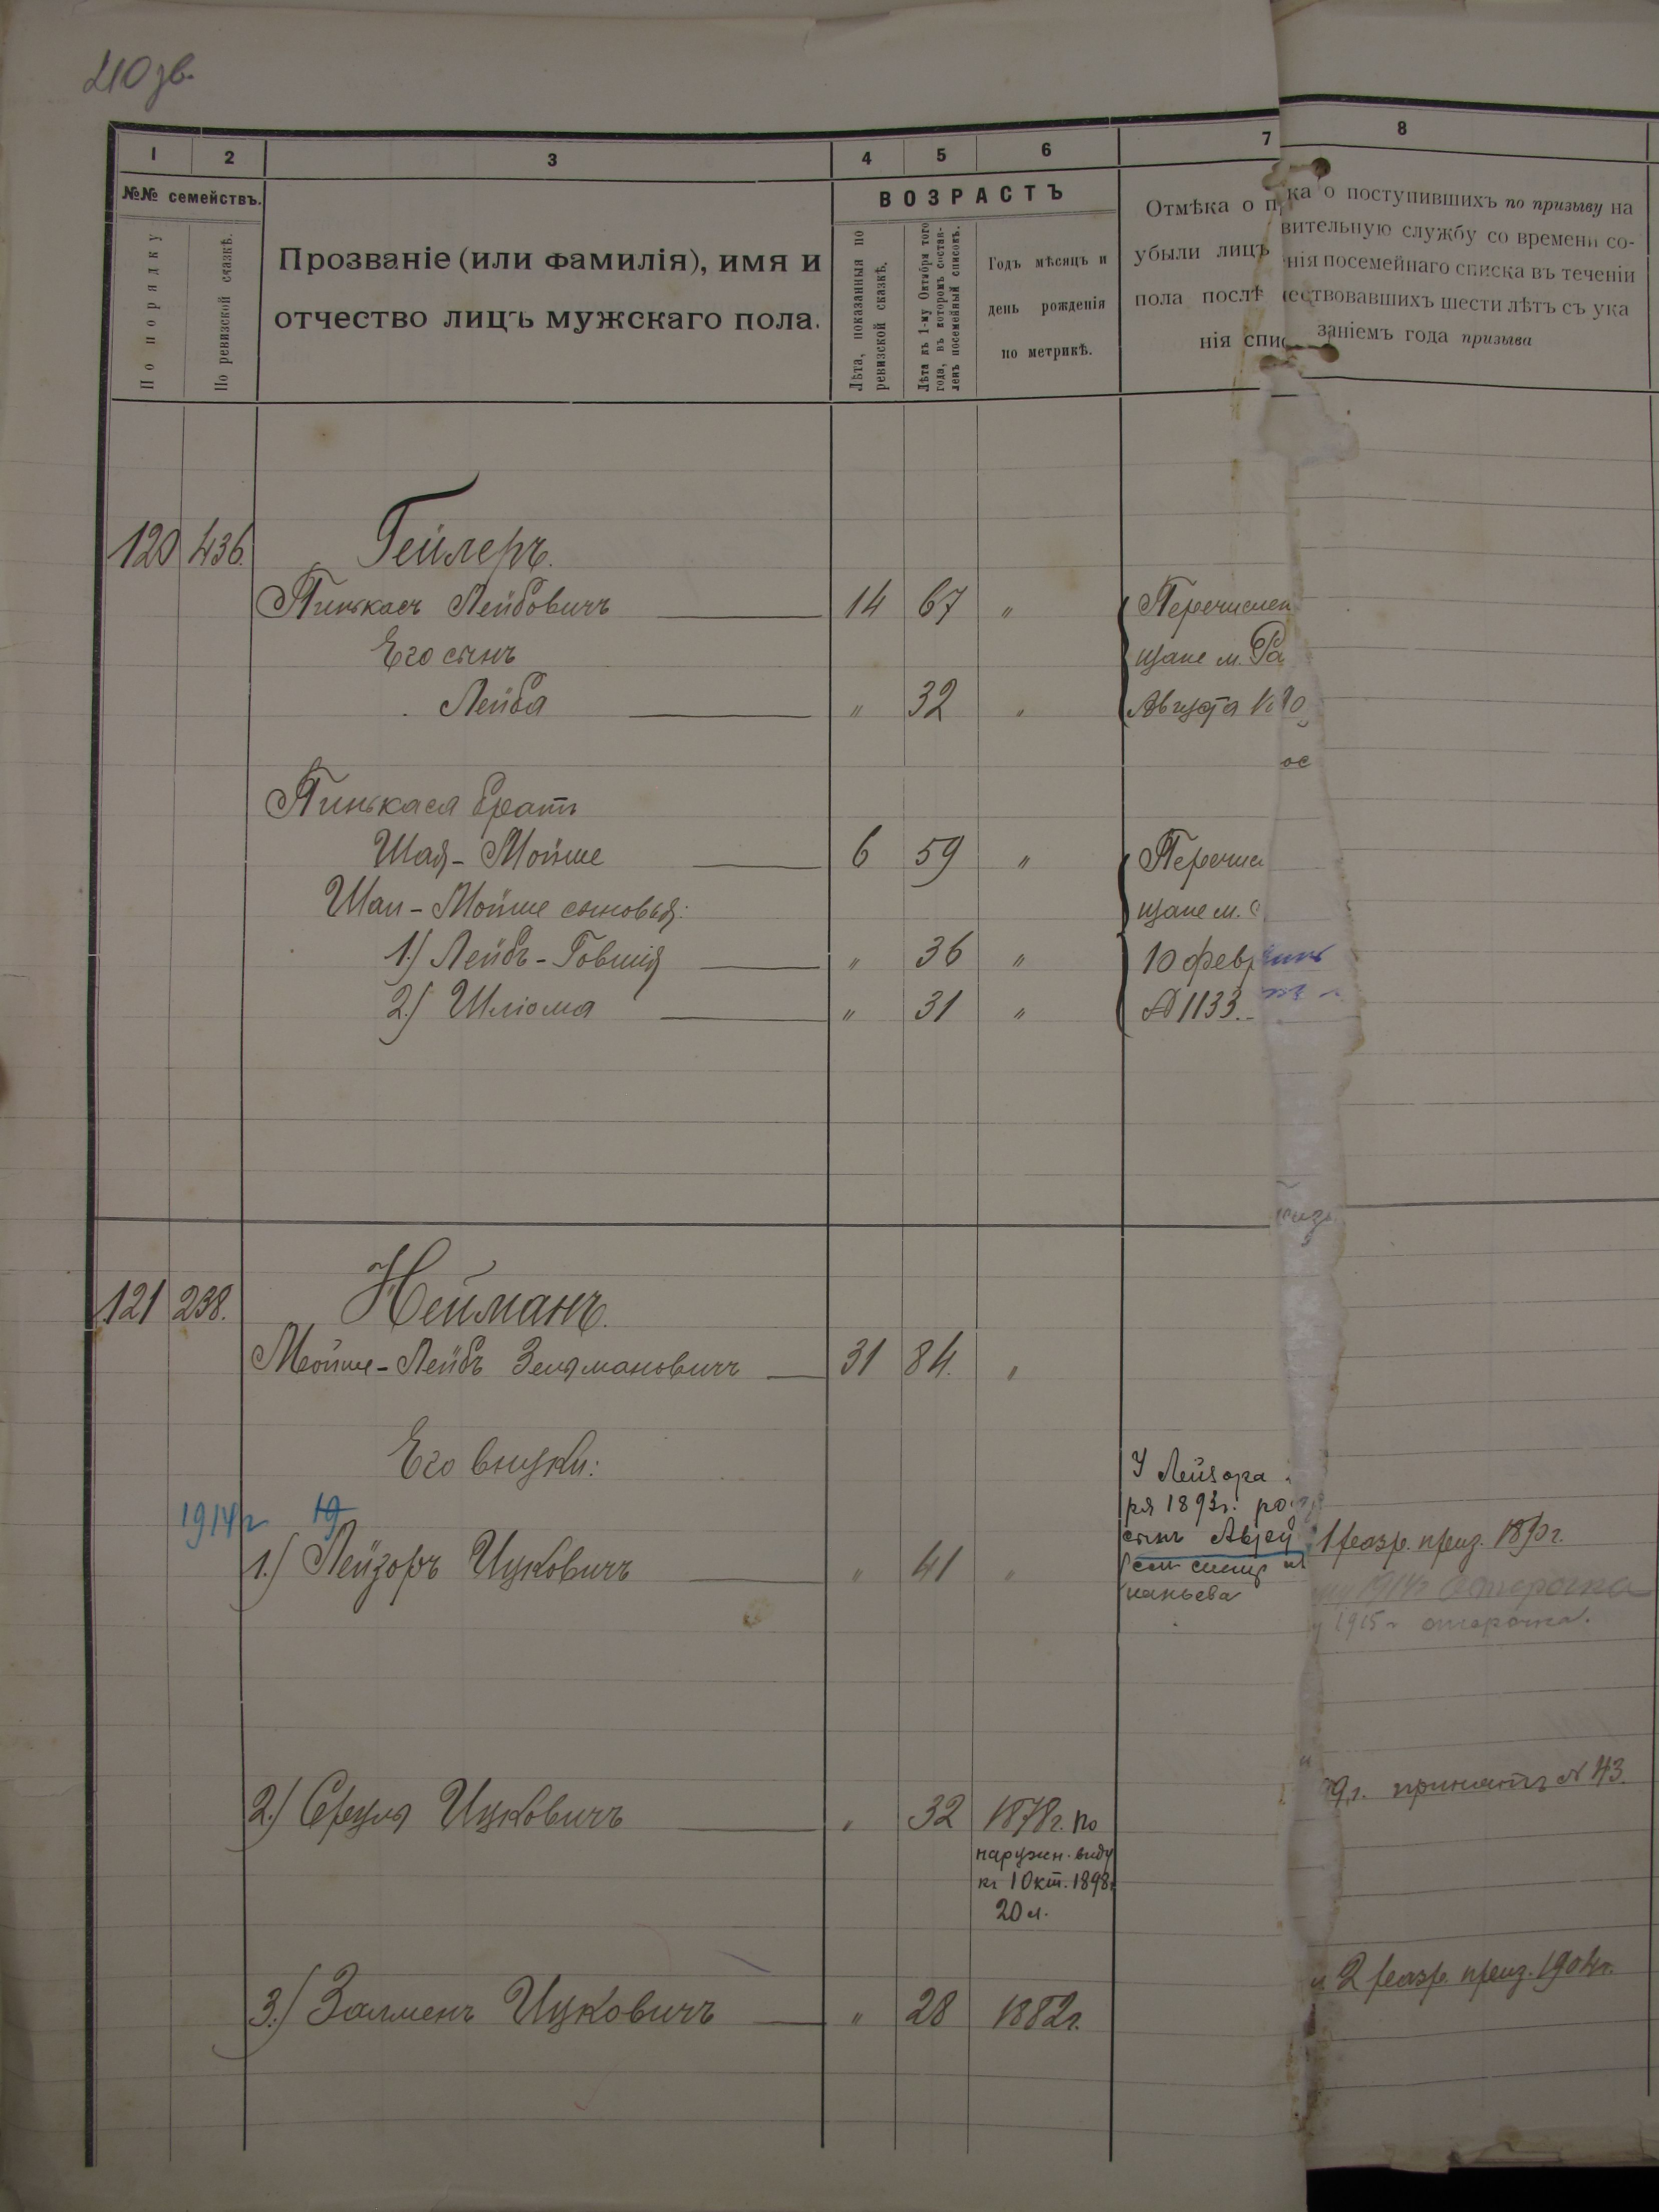 210 зв.
1 2 3 4 5 6 7 8
№№ семействъ.
По порядку
По ревизской сказкѣ.
Прозваніе (или фамилія), имя и
отчество лицъ мужскаго пола.
ВОЗРАСТЪ
Лѣта, показанныя по
ревизской сказкѣ.
Лѣта къ 1-му Октября того
года, въ которомъ состав-
ленъ посемейный списокъ.
Годъ мѣсяцъ и
день рожденія
по метрикѣ.
Отмѣка о п
убыли лицъ
пола послѣ
нія спис
ка о поступившихъ по призыву на
вительную службу со времени со-
нія посемейнаго списка въ теченіи
ествовавшихъ шести лѣтъ съ ука
заніемъ года призыва
120 436. Гейлеръ.
Пинькасъ Лейбовичъ 14 67 " Перечислен
Его сынъ щане м. Ра
Лейба " 32 " Августа
Пинькася братъ
Шая-Мойше 6 59 " Перечис
Шаи-Мойше сыновья: щане м.
1.) Лейбъ-Говшія " 36 " 10 февр
2.) Шліома " 31 " №1133.
121 238. Нейманъ.
Мойше-Лейбъ Зельмановичъ 31 84. "
Его внуки:
У Лейзора
ря 1893г. ро
1914 г 19 сынъ
1.) Лейзоръ Ицковичъ " 41 " 1 разр. приз.
наньева
1914г Отсрочка
1915 г отсрочка.
2.) Сруля Ицковичъ " 32 1878г. по
наружн. виду
къ 1 Окт. 1898г
20 л.
9г. принятъ № 43.
3.) Залменъ Ицковичъ " 28 1882г. 2 разр. приз. 1904г.